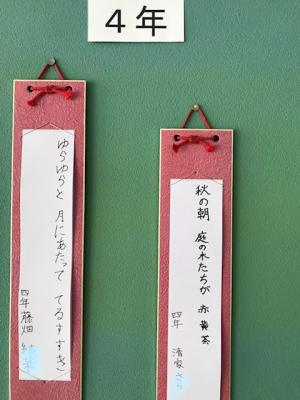 4年
秋の朝 庭の木たちが 赤黄茶
四年 清家
ゆらゆらと 月にあたって てるすすき
四年藤畑